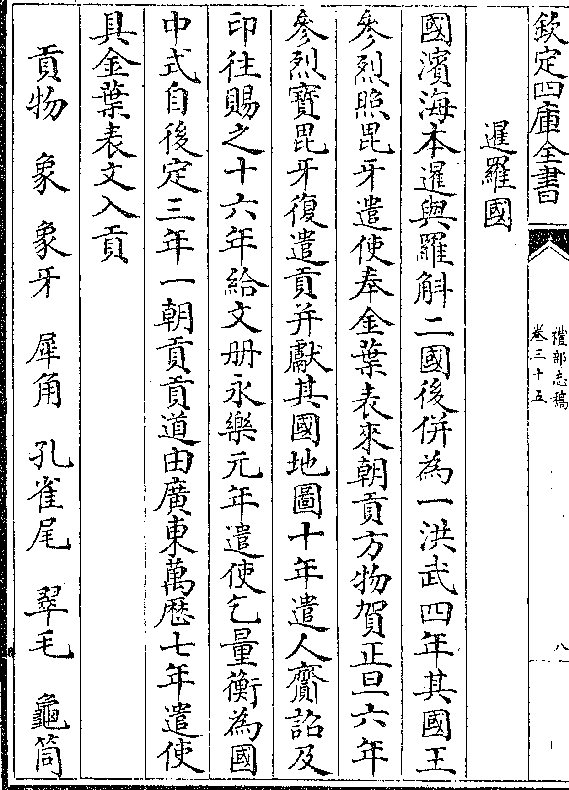 欽定四庫全書
禮部志稿
卷三十五
八
暹羅國
國濱海本暹與羅斛二國後併為一洪武四年其國王
參烈照毘牙遣使奉金葉表來朝貢方物賀正旦六年
參烈寶毘牙復遣貢并獻其國地圖十年遣人齎詔及
印往賜之十六年給文册永樂元年遣使乞量衡為國
中式自後定三年一朝貢貢道由廣東萬歷七年遣使
具金葉表文入貢
貢物 象 象牙 犀角 孔雀尾 翠毛 龜筒